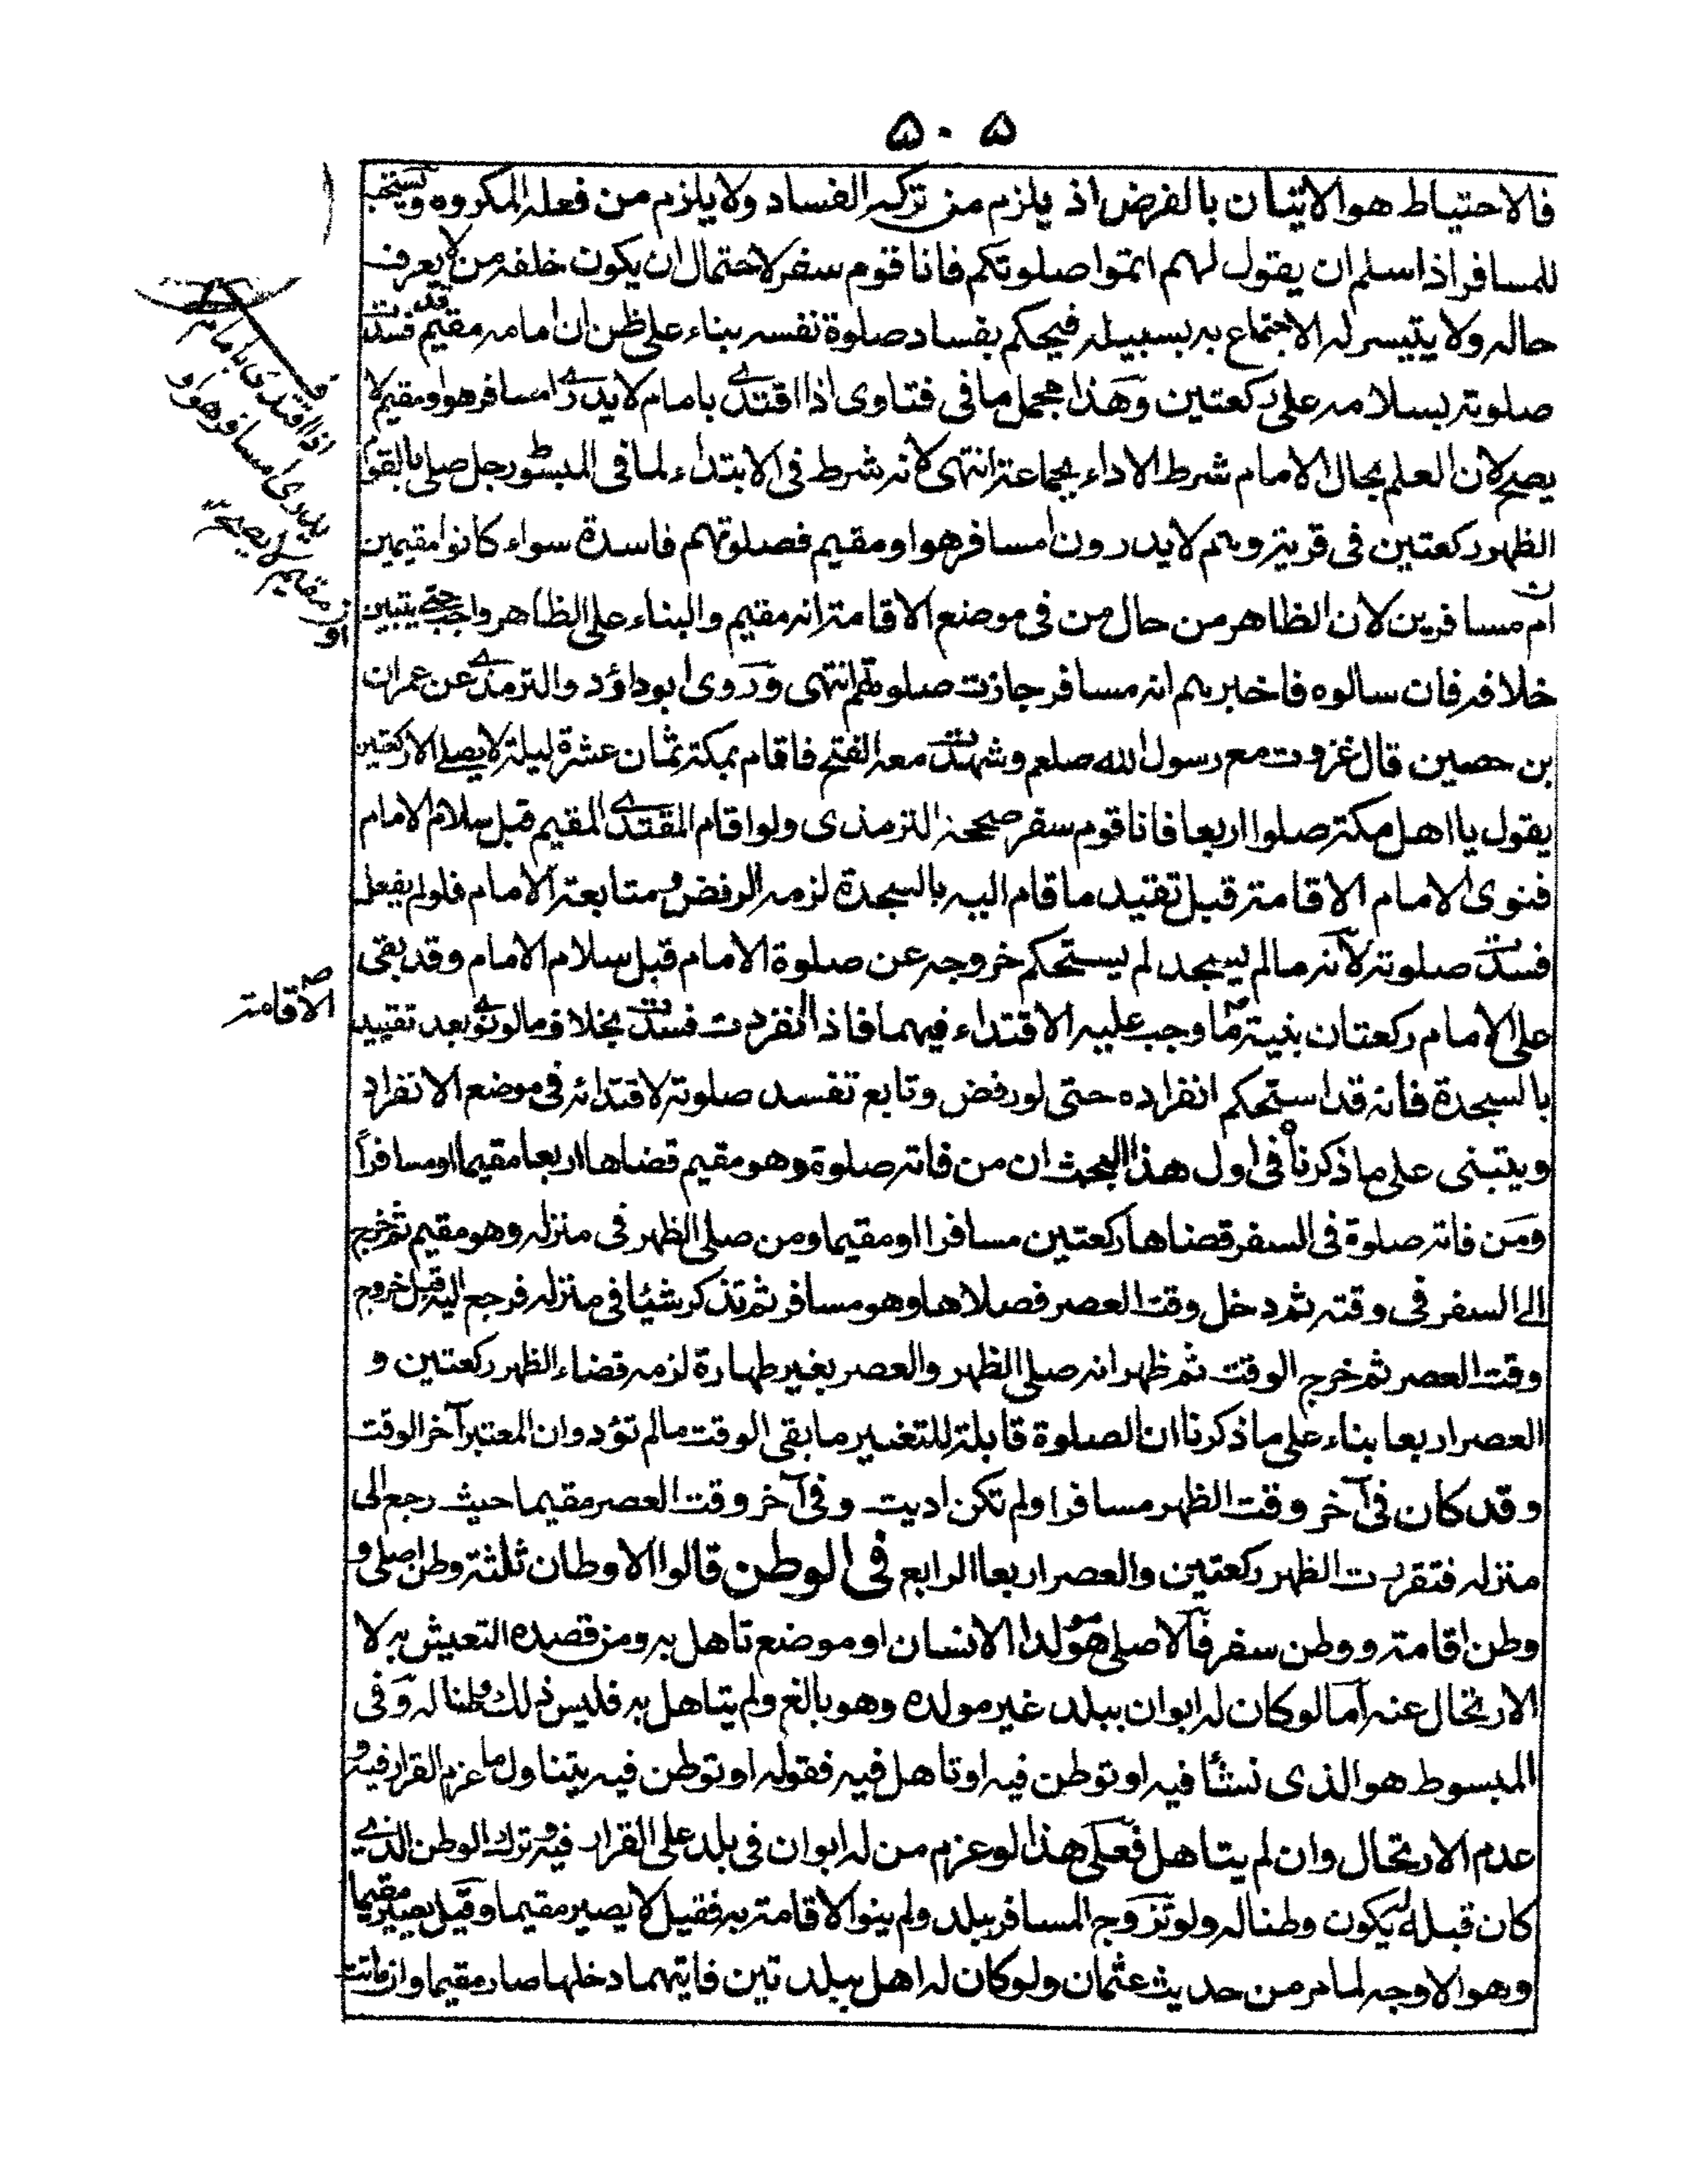 ۵۰۵
فالاحتياط هوالاتيان بالفرض اذ يلزم من تركه الفساد ولا يلزم من فعله المكروه ويستحب
للمسافر اذا سلم ان يقول لهم اتموا صلوتكم فانا قوم سفر لاحتمال ان يكون خلفه من لا يعرف
حاله ولا يتيسر له الاجتماع به بسبيله فيحكم بفساد صلوة نفسه بناء على ظن ان امامه مقيم قد فسدت
صلوته بسلامه على ركعتين وهذا محمل ما فى فتاوى اذا اقتدى بامام لا يدرى امسافر هو او مقيم لا
يصح لان العلم بحال الامام شرط الاداء بجماعة انتهى لانه شرط فى الابتداء لما فى المبسوط رجل صلى بالقوم
الظهر ركعتين فى قرية وهم لا يدرون امسافر هو او مقيم فصلوتهم فاسدة سواء كانوا مقيمين
ام مسافرين لان الظاهر من حال من فى موضع الاقامة انه مقيم والبناء على الظاهر واجب حتى يتبين
خلافه فان سالوه فاخبرهم انه مسافر جازت صلوتهم انتهى وروى ابوداؤد والترمذى عن عمران
بن حصين قال غزوت مع رسول الله صلعم وشهدت معه الفتح فاقام بمكة ثمان عشرة ليلة لا يصلى الا ركعتين
يقول يا اهل مكة صلوا اربعا فانا قوم سفر صححه الترمذى ولو اقام المقتدى المقيم قبل سلام الامام
فنوى الامام الاقامة قبل تقييد ما قام اليه بالسجدة لزمه الرفض ومتابعة الامام فلو لم يفعل
فسدت صلوته لانه ما لم يسجد لم يستحكم خروجه عن صلوة الامام قبل سلام الامام وقد بقى
على الامام ركعتان بنية ما وجب عليه الاقتداء فيهما فاذا انفردت فسدت بخلاف ما لو نوى بعد تقييد
بالسجدة فانه قد استحكم انفراده حتى لو رفض وتابع تفسد صلوته لاقتدائه فى موضع الانفراد
ويبتنى على ما ذكرنا فى اول هذا البحث ان من فاته صلوة وهو مقيم قضاها اربعا مقيما او مسافراً
ومن فاته صلوة فى السفر قضاها ركعتين مسافرا او مقيما ومن صلى الظهر فى منزله وهو مقيم ثم خرج
الى السفر فى وقته ثم دخل وقت العصر فصلاها وهو مسافر ثم تذكر شيئا فى منزله فرجع اليه قبل خروج
وقت العصر ثم خرج الوقت ثم ظهر انه صلى الظهر والعصر بغير طهارة لزمه قضاء الظهر ركعتين و
العصر اربعا بناء على ما ذكرنا ان الصلوة قابلة للتغيير ما بقى الوقت ما لم تؤد وان المعتبر آخر الوقت
وقد كان فى آخر وقت الظهر مسافرا ولم تكن اديت وفى آخر وقت العصر مقيما حيث رجع الى
منزله فتقررت الظهر ركعتين والعصر اربعا الرابع فى الوطن قالوا الاوطان ثلثة وطن اصلى و
وطن اقامة ووطن سفر فالاصلى هو مولد الانسان او موضع تاهل به ومن قصده التعيش به لا
الارتحال عنه اما لو كان له ابوان ببلد غير مولده وهو بالغ ولم يتاهل به فليس ذلك وطنا له وفى
المبسوط هو الذى نشأ فيه او توطن فيه او تاهل فيه فقوله او توطن فيه يتناول ما عزم القرار فيه و
عدم الارتحال وان لم يتاهل فعلى هذا لو عزم من له ابوان فى بلد على القرار فيه وترك الوطن الذى
كان قبله يكون وطنا له ولو تزوج المسافر ببلد ولم ينو الاقامة به فقيل لا يصير مقيما وقيل يصير مقيما
وهو الاوجه لما مر من حديث عثمان ولو كان له اهل ببلدتين فايتهما دخلها صار مقيما وان ماتت
اذا اقتدى بامام لا
يدرى امسافر هو او
مقيم لا يصح
الاقامة